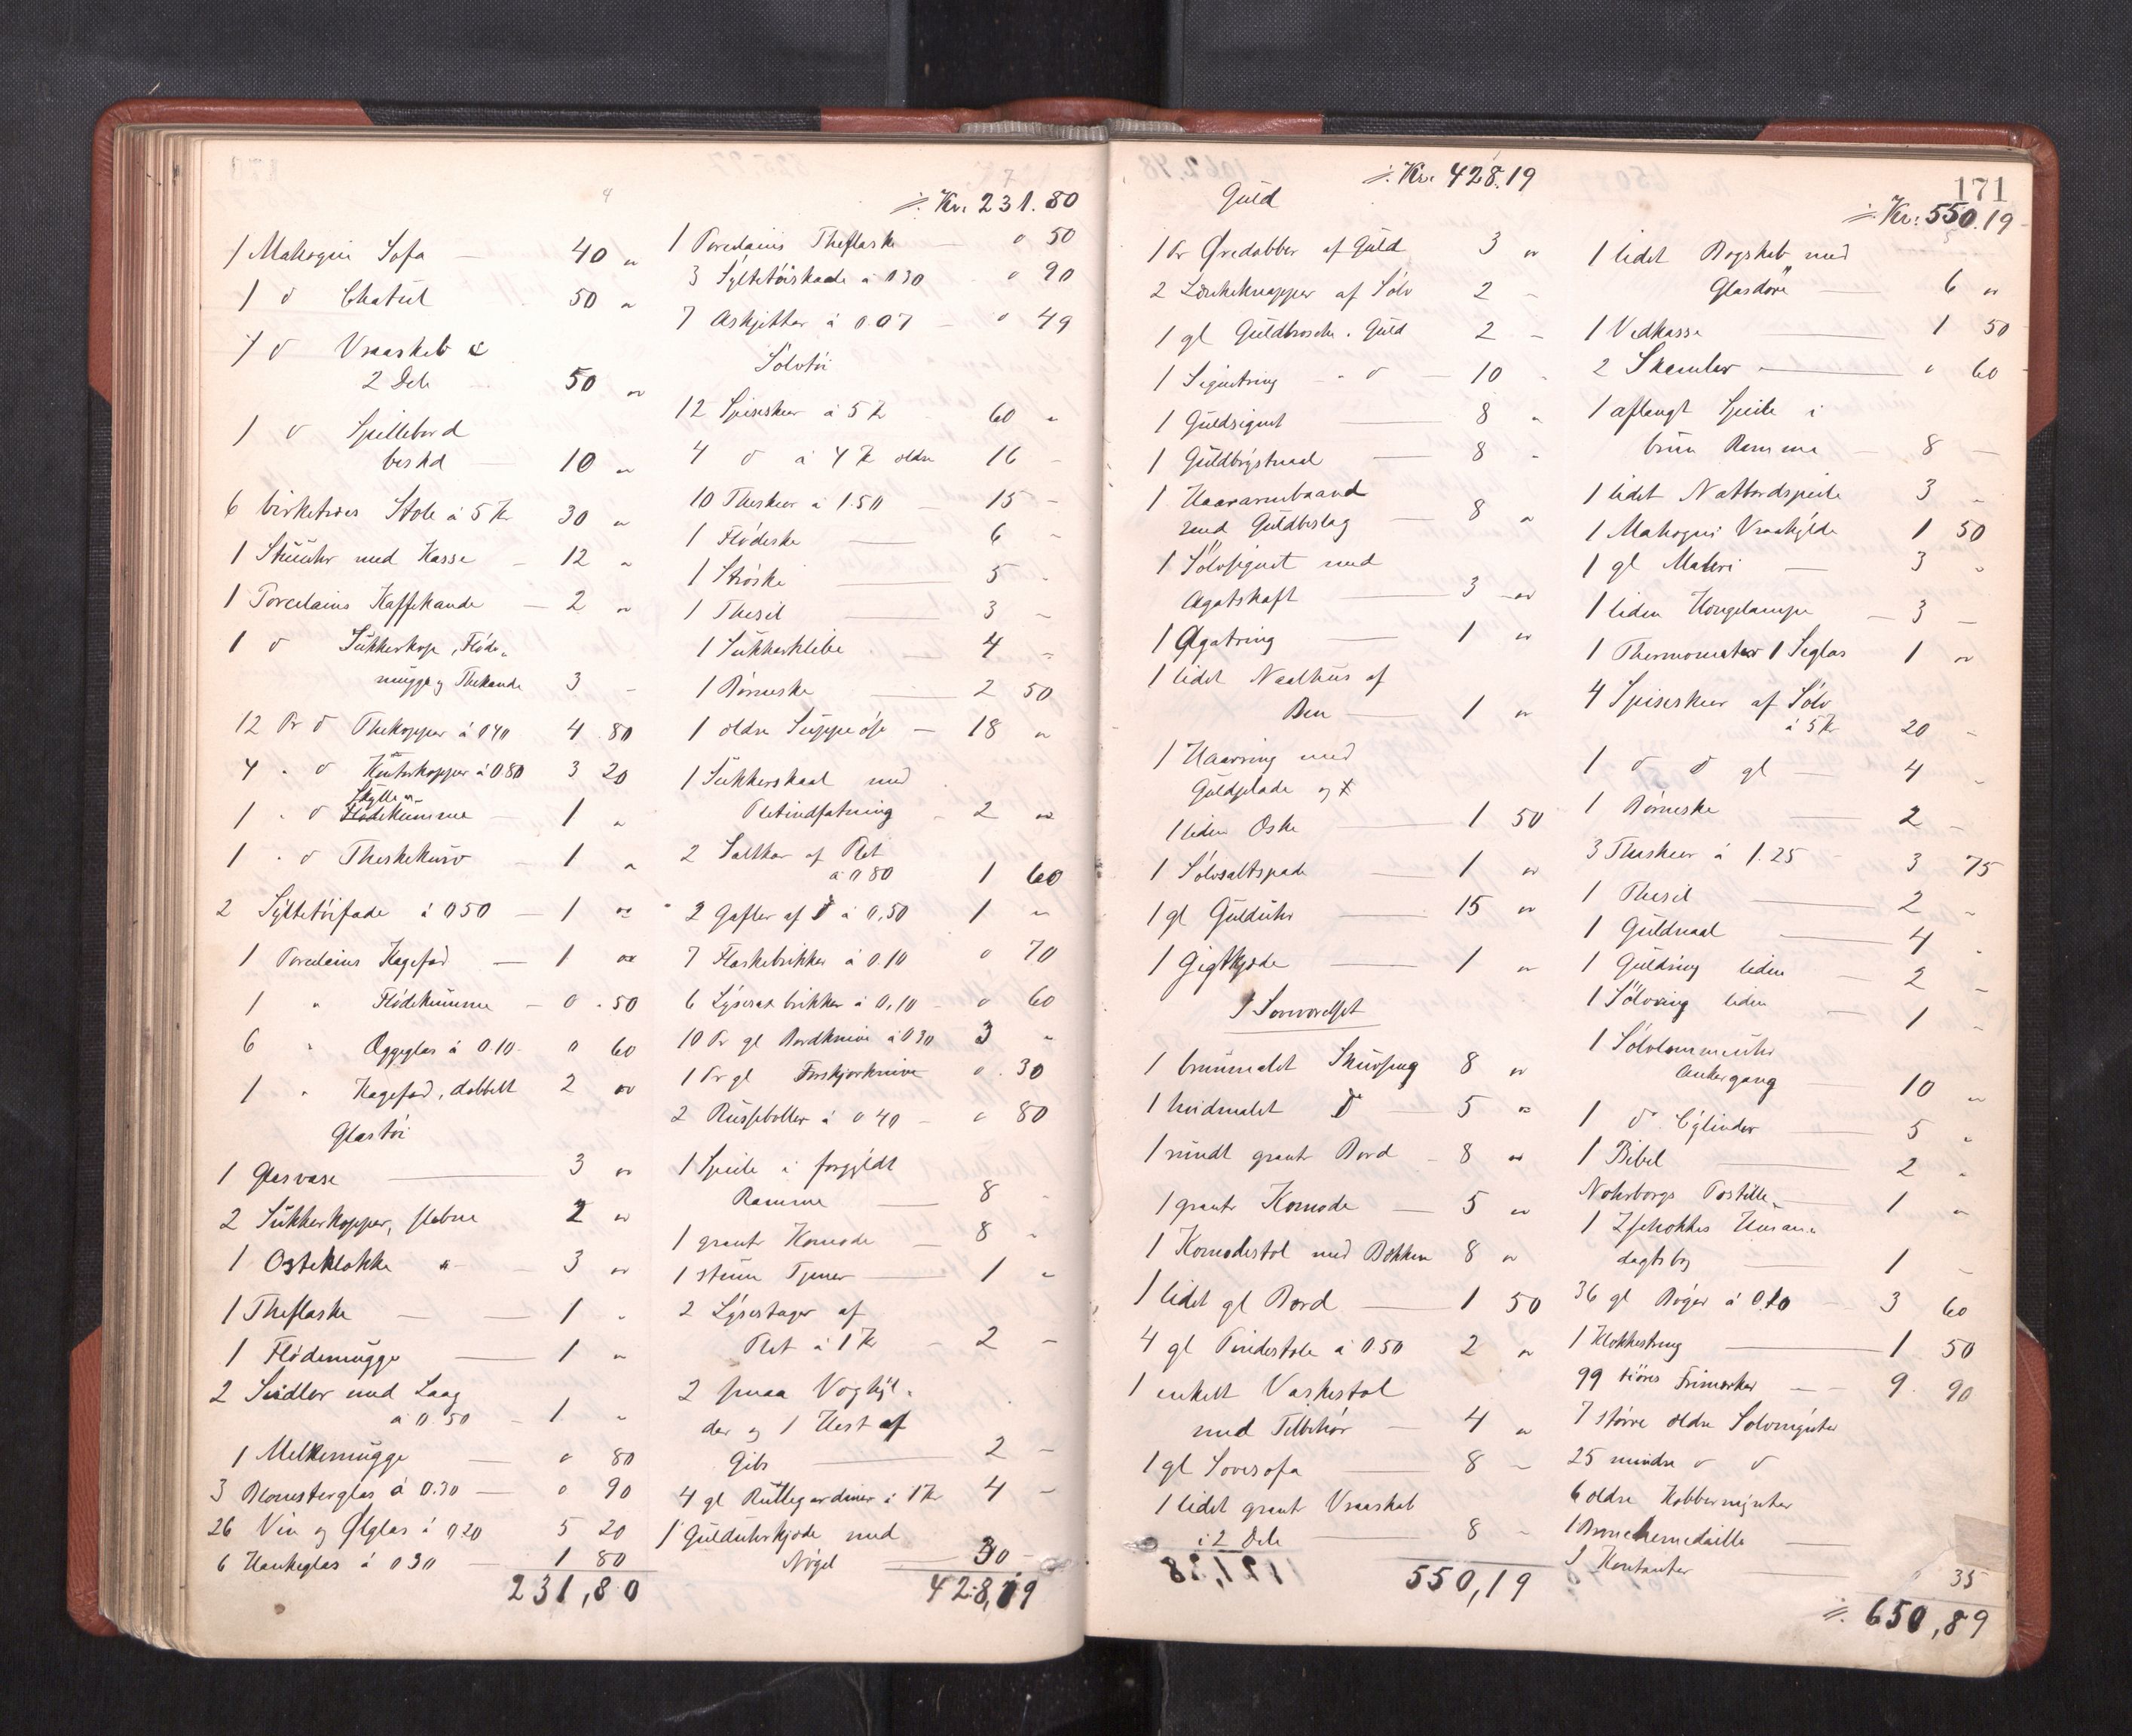 1 Mahogni Sofa — 40 "
1 do Chatul 50 "
1 do Vraaskab i
2 Dele 50 "
1 do Spillebord
10 "
6 birketræes Stole á 5 Kr 30 "
1 Stueuhr med Kasse — 12 "
1 Porcelains Kaffekande — 2 "
1 do Sukkerkop, Fløde-
mugge og Thekande 3 –
12 Pr do Thekopper á 0 40 4 80
4 " do Kopper á 0.80 3 20
1 " do Skylle-kumme — 1 "
1 " do Theskekurv — 1 "
2 Syltetøifade á 0 50 — 1 "
1 Porcelains Kagefad — 1 "
1 " Flødekumme — 0 . 50
6 " Æggeglas á 0 10 0 60
1 " Kagefad, dobbelt 2 "
Glastøi
1 Glasvase — 3 "
2 Sukkerkopper, slebne 2 "
1 Osteklokke " — 3 "
1 Theflaske — 1 "
1 Flødemugge — 1 "
2 Seidler med Laag
á 0 50 — 1 "
1 Melkemugge — 0 80
3 Blomsterglas á 0.30 — 0 90
26 Vin og Ølglas á 0 20 5 20
6 Hankeglas á 0 30 — 1 80
231,80
∴ Kr. 231.80
1 Porcelains Theflaske — 0 50
3 Syltetøiskaale á 0 30 0 90
7 Askjetter á 0.07 — 0 49
Sølvtøi
12 Spiseskeer á 5 Kr 60 "
4 do á 4 Kr ældre 16 –
10 Theskeer á 1.50 — 15 –
1 Flødeske — 6 –
1 Strøske — 5 -
1 Thesil — 3 –
1 Sukkerklibe — 4 –
1 Børneske — 2 50
1 ældre Suppeøse — 18 "
1 Sukkerskaal med
Pletindfatning — 2 "
2 Saltkar af Plet
á 0 80 1 60
2 Gafler af do á 0,50 1 "
7 Flaskebrikker á 0.10 0 70
6 Lysesax brikker á 0,10 – 0 60
10 Pr gl Bordknive á 0 30 3 "
1 Pr gl Forskjærknive 0 . 30
2 Russeboller á 0 40 — 0 80
1 Speile i forgyldt
Ramme — 8 –
1 grønt Komode — 8 –
1 stum Tjener — 1 "
2 Lysestager af
Plet á 1 Kr — 2 –
2 smaa
der og 1 Hest af
Gibs — 2 –
4 gl Rullegardiner á 1 Kr 4 –
1 Gulduhrkjæde med
Nøgel — 30 –
428,19
∴ Kr. 428.19
Guld
1 Pr Øredobber af Guld 3 "
2 Lænkeknapper af Sølv 2 –
1 gl Guldbrosche. Guld 2 –
1 Signetring - do — 10 -
1 Guldsignet — 8 "
1 Guldbrystnaal — 8 –
1 Haararmbaand
med Guldbeslag — 8 "
1 Sølvsignet med
Agatskaft — 3 "
1 Agatring — 1 "
1 lidet Naalhus af
Ben — 1 "
1 Haarring med
Guldplade og
1 liden Æske — 1 50
1 Sølvsaltspade — 1 "
1 gl Gulduhr — 15 "
1 Gigtkjæde — 1 "
I Soveværelset
1 brunmalet Skuvseng 8 "
1 hvidmalet do — 5 "
1 rundt grønt Bord — 8 "
1 grønt Komode — 5 "
1 Komodestol med Bækken 8 "
1 lidet gl Bord — 1 50
4 gl Pindestole á 0 50 2 "
1 enkelt Vaskestol
med Tilbehør — 4 "
1 gl Sovesofa — 8 –
1 lidet grønt Vraaskab
i 2 Dele — 8 –
550,19
171
∴ Kr. 550.19
1 lidet Bogskab med
Glasdøre — 6 "
1 Vedkasse — 1 50
2 Skamler — 0 60
1 aflangt Speile i
brun Ramme — 8 —
1 lidet Natbordspeile 3 –
1 Mahogni Vraahylde 1 50
1 gl Maleri — 3 –
1 liden Hængelampe — 3 –
1 Thermometer 1 Seglas 1 "
4 Spiseskeer af Sølv
á 5 Kr 20 –
1 do do gl — 4 –
1 Børneske — 2 –
3 Theskeer á 1.25 — 3 75
1 Thesil — 2 –
1 Guldnaal — 4 –
1 Guldring liden — 2 –
1 Sølvring liden — 1 –
1 Sølvlommeuhr
Ankergang — 10 "
1 do Cylinder — 5 "
1 Bibel — 2 "
Nohrborgs Postille — 1 "
1 Zschokkes Husan-
dagtsbog — 1 –
36 gl Bøger á 0.10 — 3 60
1 Klokkestreng — 1 50
99 tiøres Frimærker — 9. 90
7 større ældre Sølvmynter
25 mindre do do
6 ældre Kobbermynter
1 Broncemedaille —
I Kontanter — 35
∴ 650,89